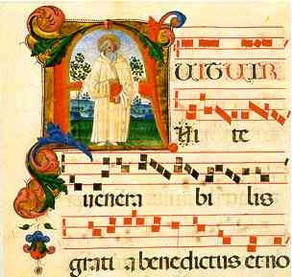 FUIT UIR
Vi te
venera bi lis
grati a benedictus et no